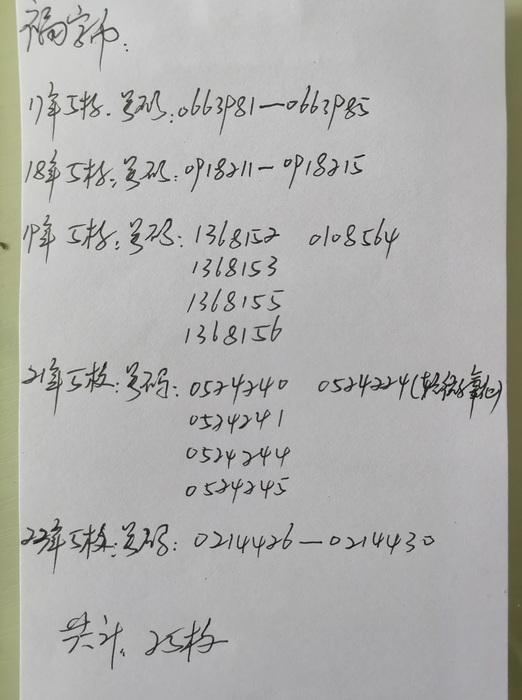 福字币:
17年5枚.号码:0663981—0663985
18年5枚:号码:0918211—0918215
19年5枚:号码:1368152 0108564
1368153
1368155
1368156
21年5枚:号码:0524240 0524224(轻微氧化)
0524241
0524244
0524245
22年5枚:号码:0214426—0214430
共计:25枚